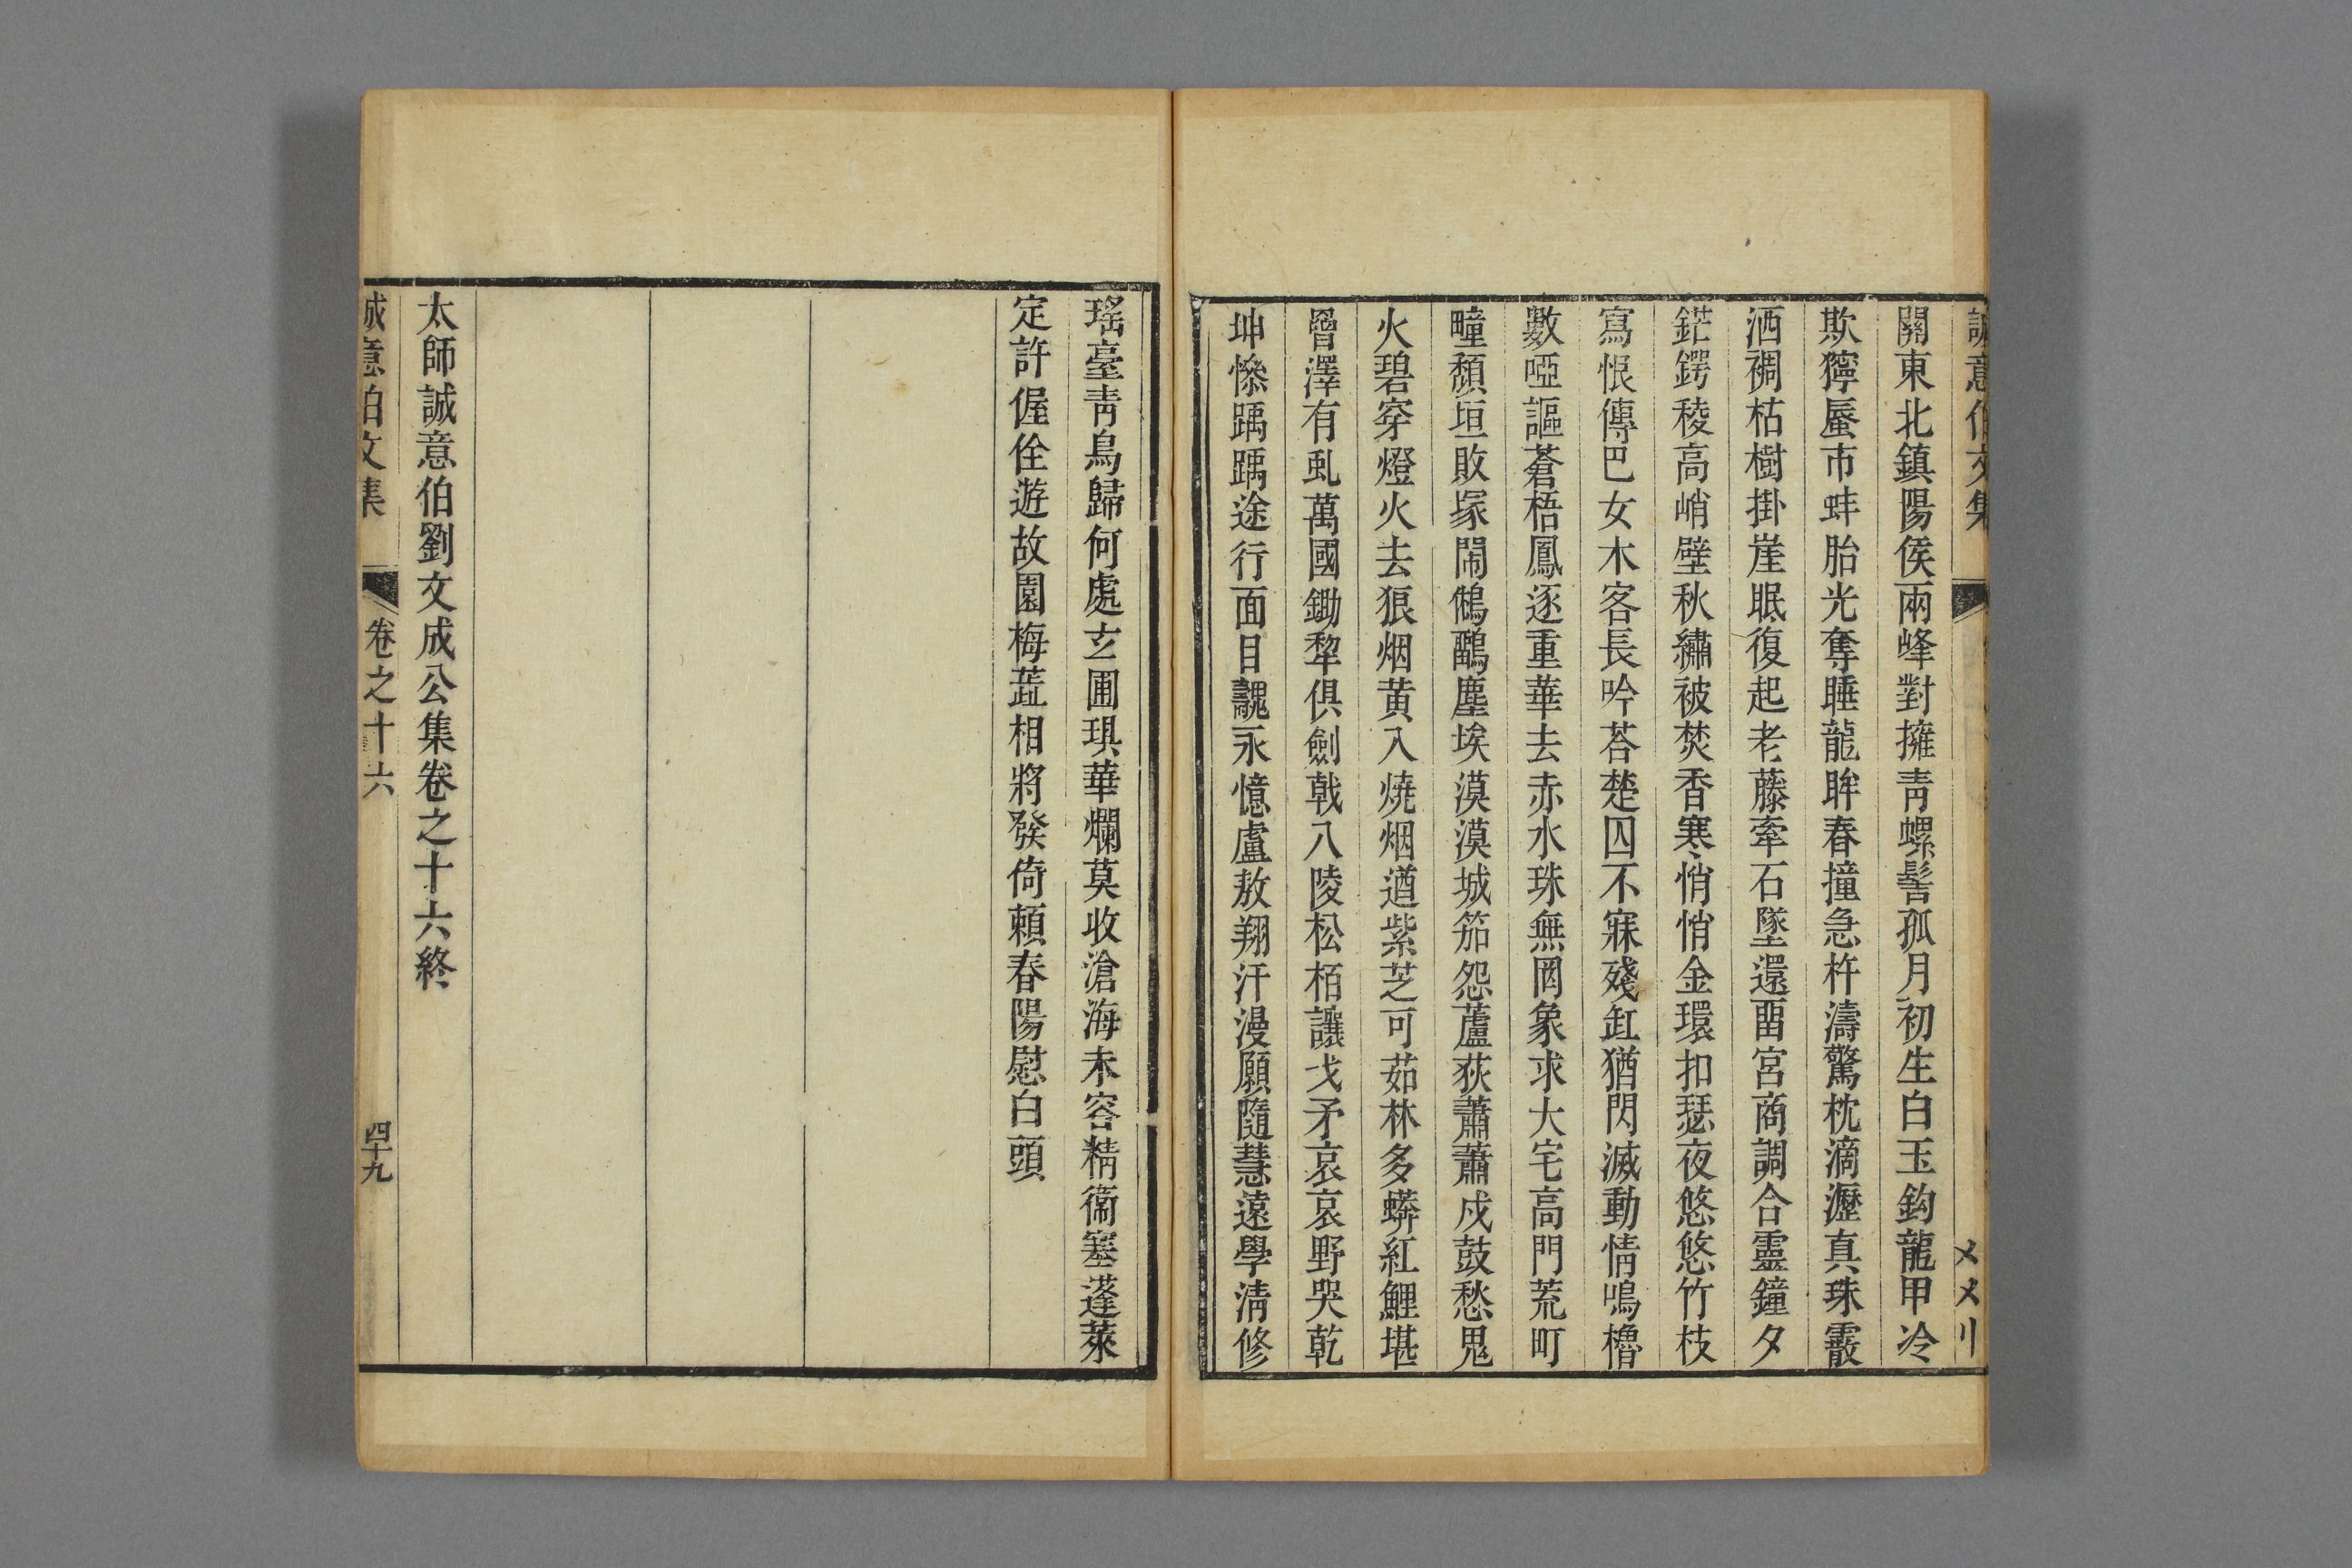 誠意伯文集
關東北鎮陽侯兩峰對擁青螺髻孤月初生白玉鈎龍甲冷
欺獰蜃市蚌胎光奪睡龍眸春撞急杵濤驚枕滴瀝真珠霰
洒裯枯樹掛崖眠復起老藤牽石墜還畱宮商調合靈鐘夕
鋩鍔稜高峭壁秋繡被焚香寒悄悄金環扣瑟夜悠悠竹枝
寫恨傳巴女木客長吟荅楚囚不寐殘缸猶閃滅動情鳴櫓
數啞謳蒼梧鳳逐重華去赤水珠無罔象求大宅高門荒町
疃頹垣敗塚閙鵂鶹塵埃漠漠城笳怨蘆荻蕭蕭戍鼓愁鬼
火碧穿燈火去狼烟黄入燒烟遒紫芝可茹林多蟒紅鯉堪
罾澤有虬萬國鋤犂俱劍戟八陵松栢讓戈矛哀哀野哭乾
坤慘踽踽途行面目䰟永憶盧敖翔汗漫願隨慧遠學清修
瑤臺青鳥歸何處玄圃琪華爛莫收滄海未容精衞塞蓬萊
定許偓佺遊故園梅蕋相將發倚賴春陽慰白頭
太師誠意伯劉文成公集卷之十六終
誠意伯文集 卷之十六 四十九